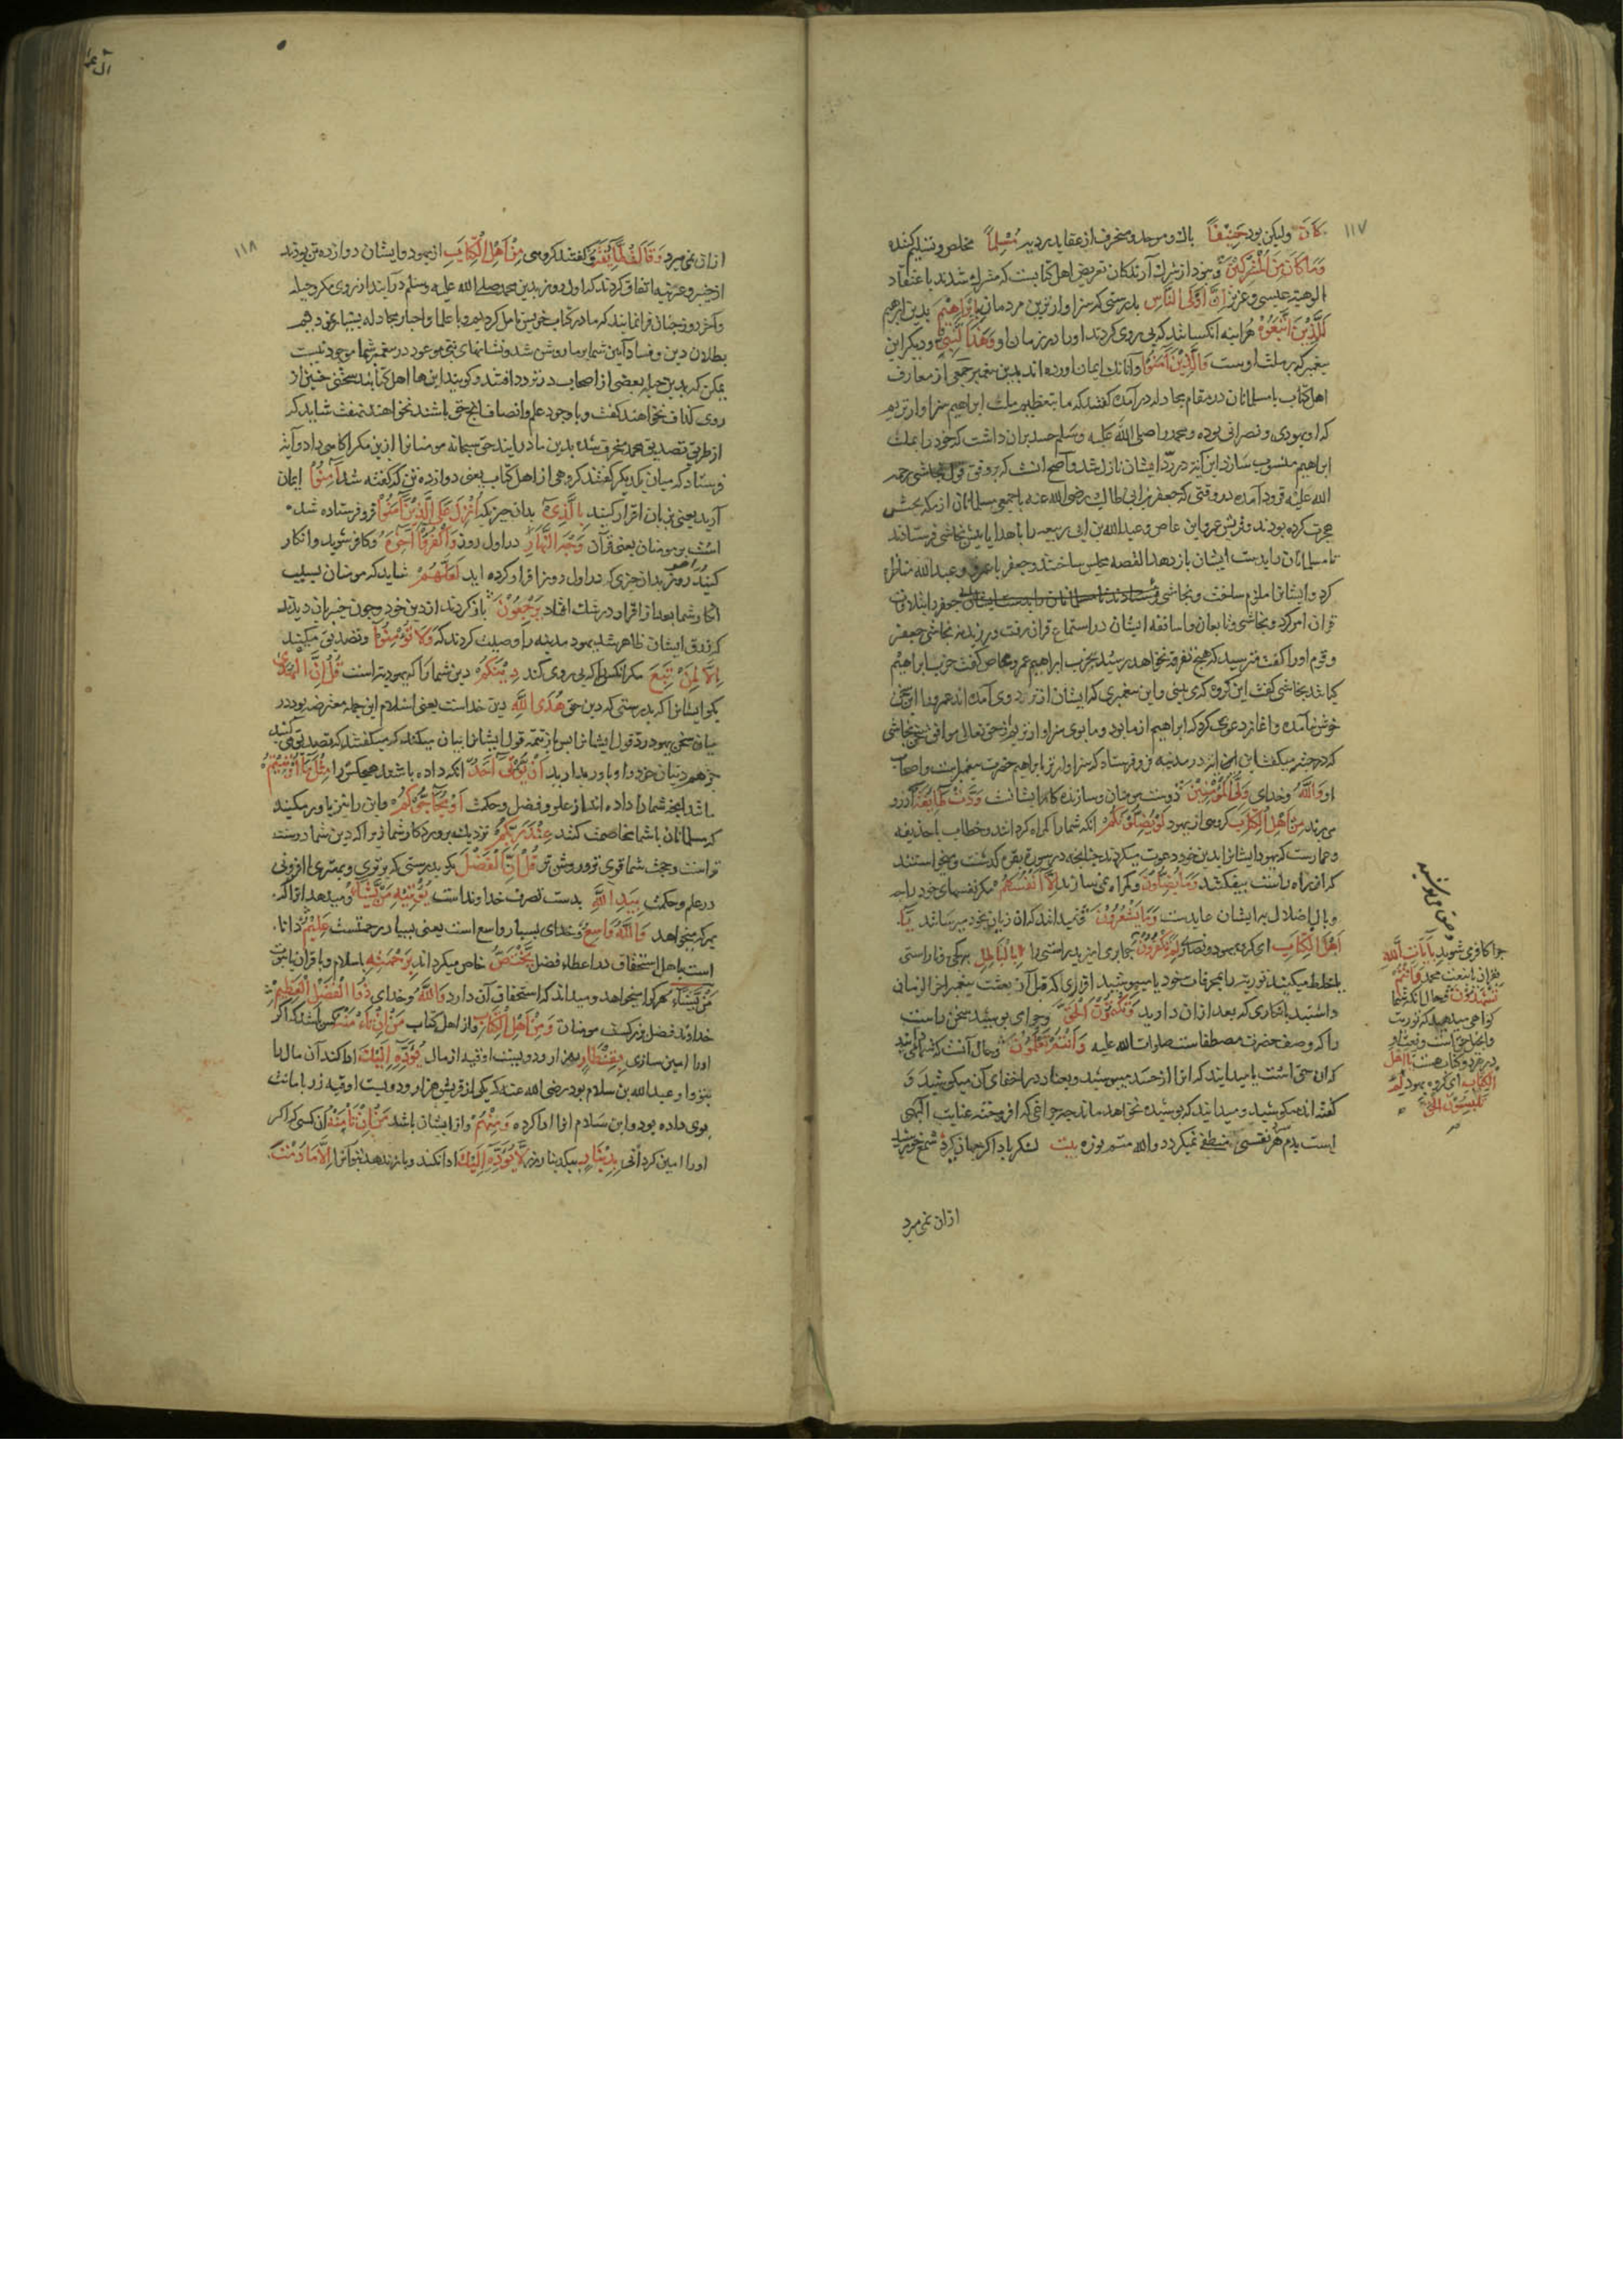 ۱۱۷
كَانَ ولیکن بود حَنِيفاً مایل و موحد و منحرف از عقاید بد مُسْلِماً مخلص و تسلیم کننده
وَمَا كَانَ مِنَ الْمُشْرِكِينَ و نبود از شرك آرندکان تعریض اهل کتابست که مشرك شدند باعتقاد
الوهیت عیسی و عزیر اِنَّ اَوْلَى النَّاسِ بدرستی که سزاوارترین مردمان بِاِبْرَاهِيمَ بدین ابرهیم
لَلَّذِينَ اتَّبَعُوهُ هراینه آنکسانند که پی روی کردند او را در زمان او وَهَذَا النَّبِيُّ و دیکر این
پیغمبر که بر ملت اوست وَالَّذِينَ اٰمَنُوا و آنانکه ایمان اورده اند بدین پیغمبر جمعی از معارف
اهل کتاب با مسلمانان در مقام مجادله درآمدند کفتند که ما بتعظیم ملت ابراهیم سزاوارتریم
که او یهودی و نصرانی بوده و محمد را صلی الله علیه وسلم حسد بران داشت که خود را بملت
ابراهیم منسوب سازد این آیة در رد ایشان نازل شد و اصح انست که بر وفق قول نجاشی رحمة
الله علیه فرود آمده در وقتی که جعفر بن ابی طالب رضی الله عنه با جمعی مسلمانان از مکه بحبش
هجرت کرده بودند و قریش عمرو ابن عاص و عبدالله بن ابی ربیعه را با هدایا پیش نجاشی فرستادند
تا مسلمانان را بدست ایشان بازدهد القصه مجلس ساختند و جعفر با عمرو و عبدالله مناظره
کرد و ایشانرا ملزم ساخت و نجاشی
قران امر کرد و نجاشی و تابعان و اساقفه ایشان در استماع قران برفت و نجاشی جعفر
و قوم او را کفت مترسید که هیچ تفرقه نخواهد رسید بحزب ابراهیم عمرو عاص کفت حزب ابراهیم
کیانند نجاشی کفت این کروه که می بینی و این پیغمبری که ایشان از نزد وی آمده اند عمرو را این سخن
خوش نیامده و اغاز دعوی کرد که ابراهیم از ما بود و ما بوی سزاوارتریم حق تعالی موافق سخن نجاشی
که در حبشه میکفت این آیة در مدینه فرو فرستاد که سزاوارتر بابراهیم حضرت پیغمبرست و اصحاب
او وَاللَّهُ و خدای وَلِيُّ الْمُؤْمِنِينَ دوست مومنان و سازنده کار ایشانست وَدَّتْ طَائِفَةٌ آرزو
می برند مِنْ اَهْلِ الْكِتَابِ کروهی از یهود لَوْ يُضِلُّونَكُمْ انکه شما را کمراه کردانند و خطاب با حذیفه
و عمارست که یهود ایشانرا بدین خود دعوت میکردند چنانچه در سوره بقره کذشت و میخواستند
که از راه راست بیفکنند وَمَا يُضِلُّونَ و کمراه نمی سازند اِلَّا اَنْفُسَهُمْ مکر نفسهای خود را چه
وبال اضلال برایشان عایدست وَمَا يَشْعُرُونَ و نمیدانند که ان زیان بخود میرسانند يَا
اَهْلَ الْكِتَابِ ای کروه یهود و نصاری لِمَ چرا می امیزید راستی را بِالْبَاطِلِ بکژی و ناراستی
یا خلط میکنید توریة را بمحرفات خود یا میپوشید اقراری که قبل از بعثت پیغمبر اخر الزمان
داشتید بانکاری که بعد ازان دارید وَتَكْتُمُونَ الْحَقَّ و چرا می پوشید سخن راست
را که وصف حضرت مصطفاست صلوات الله علیه وَاَنْتُمْ تَعْلَمُونَ و حال آنست که شما می دانید
که ان حق است یا میدانید که انرا از حسد میپوشید و بعناد در اخفای آن میکوشید و
کفته اند میکوشید و میدانید که پوشیده نخواهد ماند چه چراغی که افروخته عنایت الهی
است بدم هر نفسی منطفی نمیکردد والله متم نوره بیت لشکر باد اکر جهان کیرد شمع خورشید
ازان نمی میرد
چرا کافر می شوید بِاٰيَاتِ اللَّهِ
بقران یا بنعت محمد وَاَنْتُمْ
تَشْهَدُونَ و حال انکه شما
کواهی میدهید که توریت
و انجیل حق است و نعت او
در هر دو کتاب هست يَا اَهْلَ
الْكِتَابِ ای کروه یهود لِمَ
تَلْبِسُونَ الْحَقَّ
۱۱۸
ازان نمی میرد وَقَالَتْ طَائِفَةٌ و کفتند کروهی مِنْ اَهْلِ الْكِتَابِ از یهود و ایشان دوازده تن بودند
از خیبر و عرینه اتفاق کردند که اول روز بدین محمد صلی الله علیه وسلم درآیند از روی مکر و حیله
و آخر روز چنان فرا نمایند که ما در کتاب خویش تامل کردیم و با علما و احبار مجادله بسیار نمودیم
بطلان دین و فساد آیین شما بر ما روشن شد و نشانهای نبی موعود در پیغمبر شما موجود نیست
ممکن که بدین حیله بعضی از اصحاب در تردد افتند و کویند این ها اهل کتابند سخنی چنین از
روی کذاف نخواهند کفت و با وجود علم و انصاف بجز حق باشند نخواهند نهفت شاید که
از طریق تصدیق محمد منحرف شده بدین ما درایند حق سبحانه مومنانرا ازین مکر اکاهی داد و آیة
فرستاد که میان یکدیکر کفتند کروهی از اهل کتاب یعنی دوازده تن که کفته شد اٰمِنُوا ایمان
آرید یعنی بزبان اقرار کنید بِالَّذِي بدان چیز که اُنْزِلَ عَلَى الَّذِينَ اٰمَنُوا فرو فرستاده شده
است بر مومنان یعنی قرآن وَجْهَ النَّهَارِ در اول روز وَاكْفُرُوا اٰخِرَهُ و کافر شوید و انکار
کنید در آخر روز بدان چیزی که در اول روز اقرار کرده اید لَعَلَّهُمْ شاید که مومنان بسبب
انکار شما بعد از اقرار در شك افتاده يَرْجِعُونَ باز کردند از دین خود و چون خیبریان دیدند
که زرق ایشان ظاهر شد یهود مدینه را وصیت کردند که وَلَا تُؤْمِنُوا و تصدیق میکنید
اِلَّا لِمَنْ تَبِعَ مکر انکسی را که پی روی کند دِينَكُمْ دین شما را که یهودیتست قُلْ اِنَّ الْهُدَى
بکو ایشانرا که بدرستی که دین حق هُدَى اللَّهِ دین خداست یعنی اسلام این جمله معترضه بود در
میان سخن یهود رد قول ایشانرا پس باز تتمه قول ایشانرا بیان میکند که میکفتند که تصدیق می کنید
جز هم دینان خود را و باور مدارید اَنْ يُؤْتَى اَحَدٌ انکه داده باشد هیچکس را مِثْلَ مَا اُوتِيتُمْ
مانند انچه شما را داده اند از علم و فضل و حکمت اَوْ يُحَاجُّوكُمْ و این را نیز باور میکنید
که مسلمانان با شما مخاصمت کنند عِنْدَ رَبِّكُمْ نزدیك پروردکار شما زیرا که دین شما درست
تراست و حجت شما قوی تر و روشن تر قُلْ اِنَّ الْفَضْلَ بکو بدرستی که برتری و بهتری و افزونی
در علم و حکمت بِيَدِ اللَّهِ بدست تصرف خداوند است يُؤْتِيهِ مَنْ يَشَاءُ میدهد انرا که
بهر که میخواهد وَاللَّهُ وَاسِعٌ و خدای بسیار واسع است یعنی بسیار رحمتست عَلِيمٌ دانا
است باهل استحقاق در اعطاء فضل يَخْتَصُّ خاص میکرداند بِرَحْمَتِهِ باسلام و یا قران یا نبوت
مَنْ يَشَاءُ هرکرا میخواهد و میداند که استحقاق آن دارد وَاللَّهُ و خدای ذُو الْفَضْلِ الْعَظِيمِ
خداوند فضل بزرکست مومنان وَمِنْ اَهْلِ الْكِتَابِ و از اهل کتاب مَنْ اِنْ تَاْمَنْهُ کس باشد که اکر
او را امین سازی بِقِنْطَارٍ بهزار و دویست اوقیه از مال يُؤَدِّهِ اِلَيْكَ ادا کند آن مال را
بتو و او عبدالله بن سلام بود رضی الله عنه که یکی از قریش هزار و دویست اوقیه زر بامانت
بوی داده بود و ابن سلام انرا ادا کرده وَمِنْهُمْ و از ایشان باشد مَنْ اِنْ تَاْمَنْهُ آن کسی که اکر
او را امین کردانی بِدِينَارٍ بیکدینار زر لَا يُؤَدِّهِ اِلَيْكَ ادا نکند و باز ندهد بتو آنرا اِلَّا مَا دُمْتَ